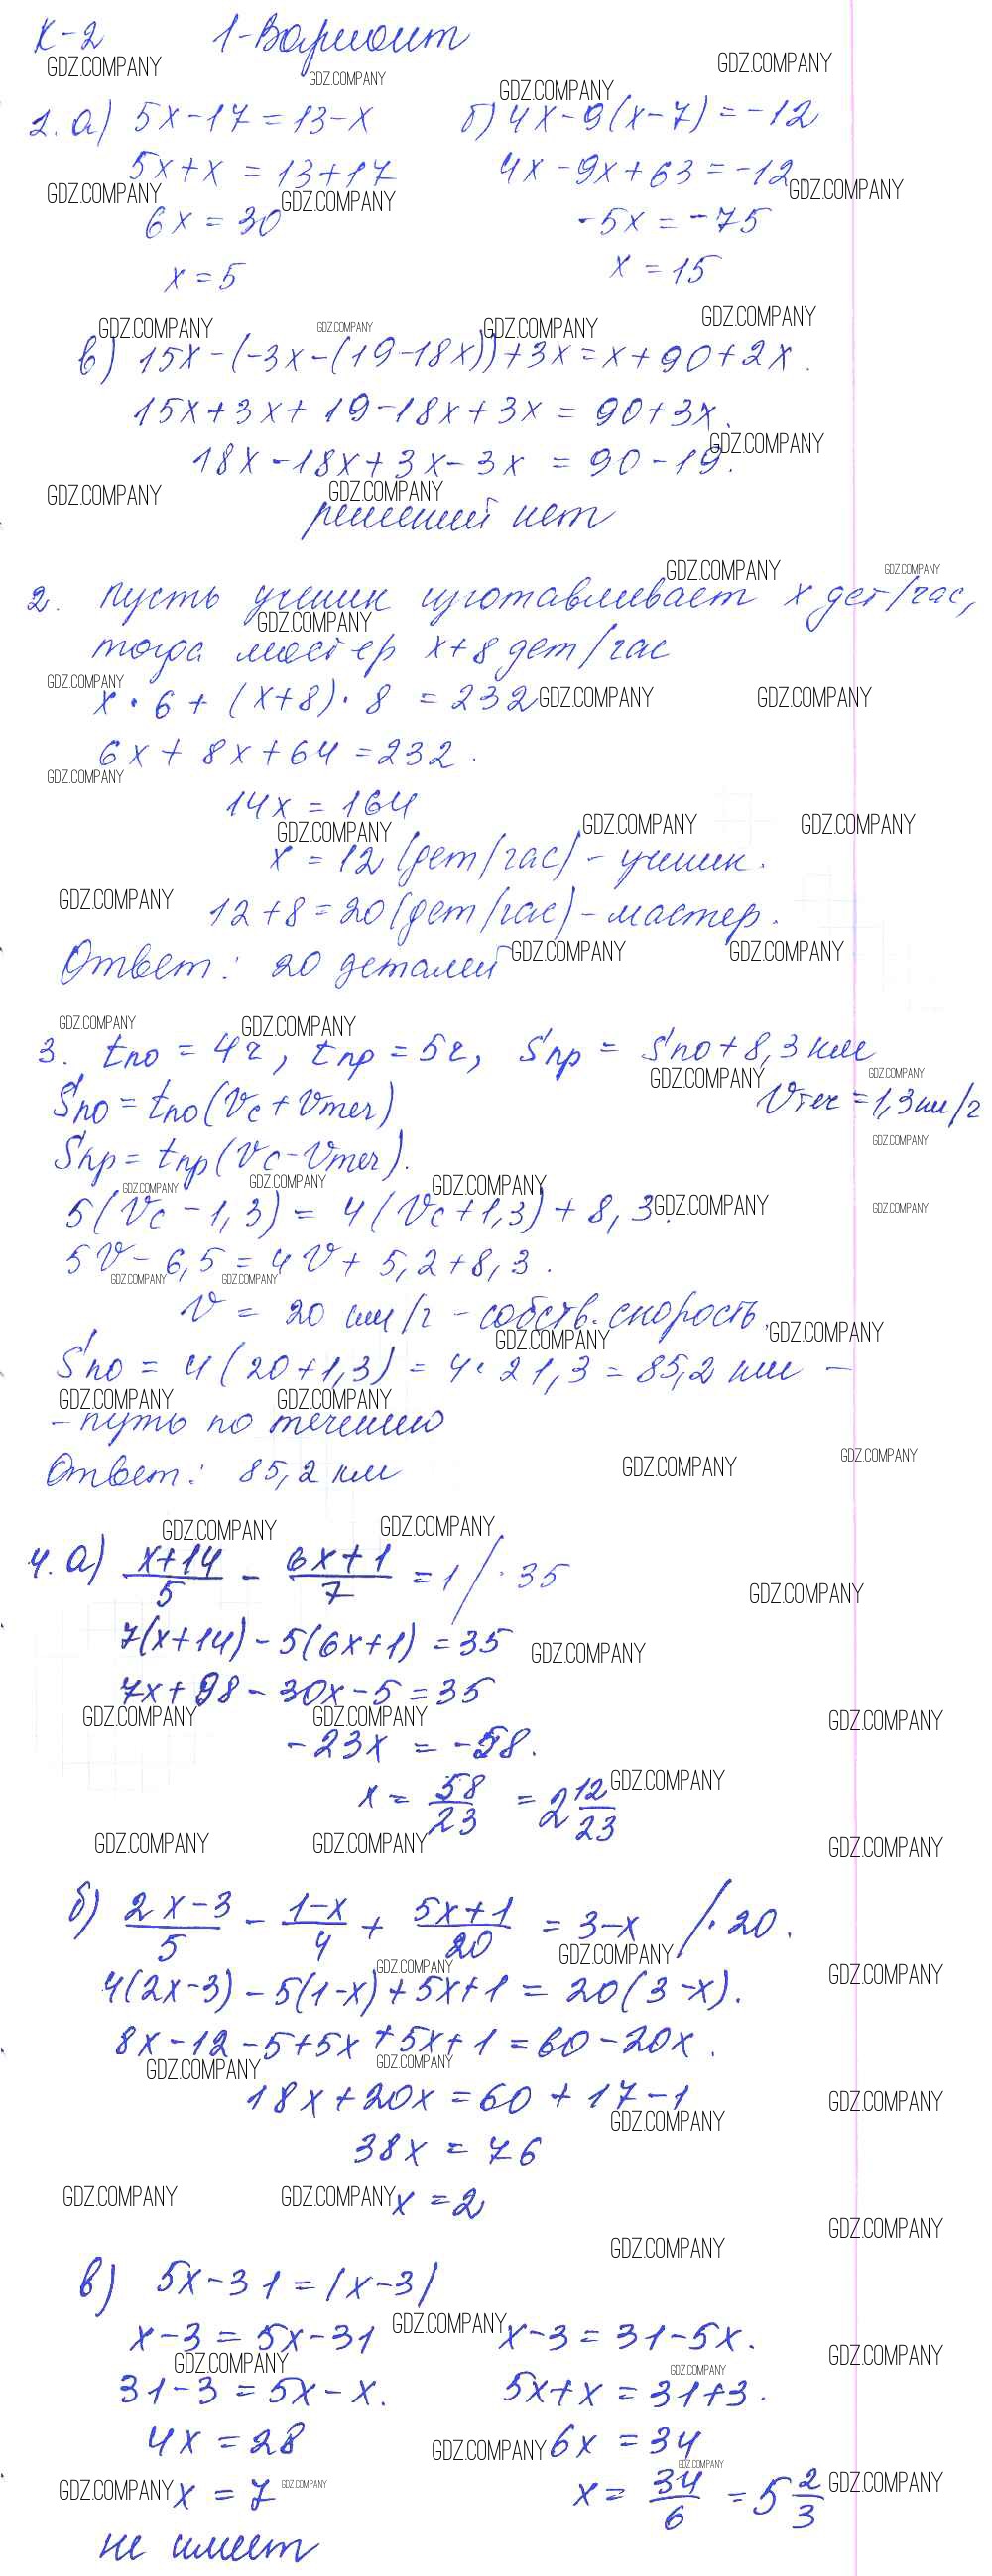 К-2 1-Вариант
1. а) 5x-17=13-x б) 4x-9(x-7)=-12
5x+x = 13+17 4x-9x+63=-12
6x = 30 -5x = -75
x = 5 x = 15
в) 15x-(-3x-(19-18x))+3x=x+90+2x.
15x+3x+19-18x+3x = 90+3x.
18x-18x+3x-3x = 90-19.
решений нет
2. пусть ученик изготавливает x дет/час,
тогда мастер x+8 дет/час
x·6+(x+8)·8 = 232
6x+8x+64=232.
14x = 164
x = 12 (дет/час) - ученик.
12+8=20 (дет/час) - мастер.
Ответ: 20 деталей
3. tпо = 4ч, tпр = 5ч, Sпр = Sпо+8,3 км
Sпо = tпо(Vс+Vтеч) Vтеч = 1,3 км/ч
Sпр = tпр(Vс-Vтеч).
5(Vс-1,3) = 4(Vс+1,3)+8,3.
5V-6,5=4V+5,2+8,3.
V = 20 км/ч - собств. скорость.
Sпо = 4(20+1,3) = 4·21,3 = 85,2 км -
- путь по течению
Ответ: 85,2 км
4. а) (x+14)/5 - (6x+1)/7 = 1 /·35
7(x+14)-5(6x+1)=35
7x+98-30x-5=35
-23x = -58.
x = 58/23 = 2 12/23
б) (2x-3)/5 - (1-x)/4 + (5x+1)/20 = 3-x /·20.
4(2x-3)-5(1-x)+5x+1 = 20(3-x).
8x-12-5+5x+5x+1=60-20x.
18x+20x=60+17-1
38x = 76
x = 2
в) 5x-31=|x-3|
x-3=5x-31 x-3=31-5x.
31-3=5x-x. 5x+x=31+3.
4x = 28 6x = 34
x = 7 x = 34/6 = 5 2/3
не имеет
GDZ.COMPANY